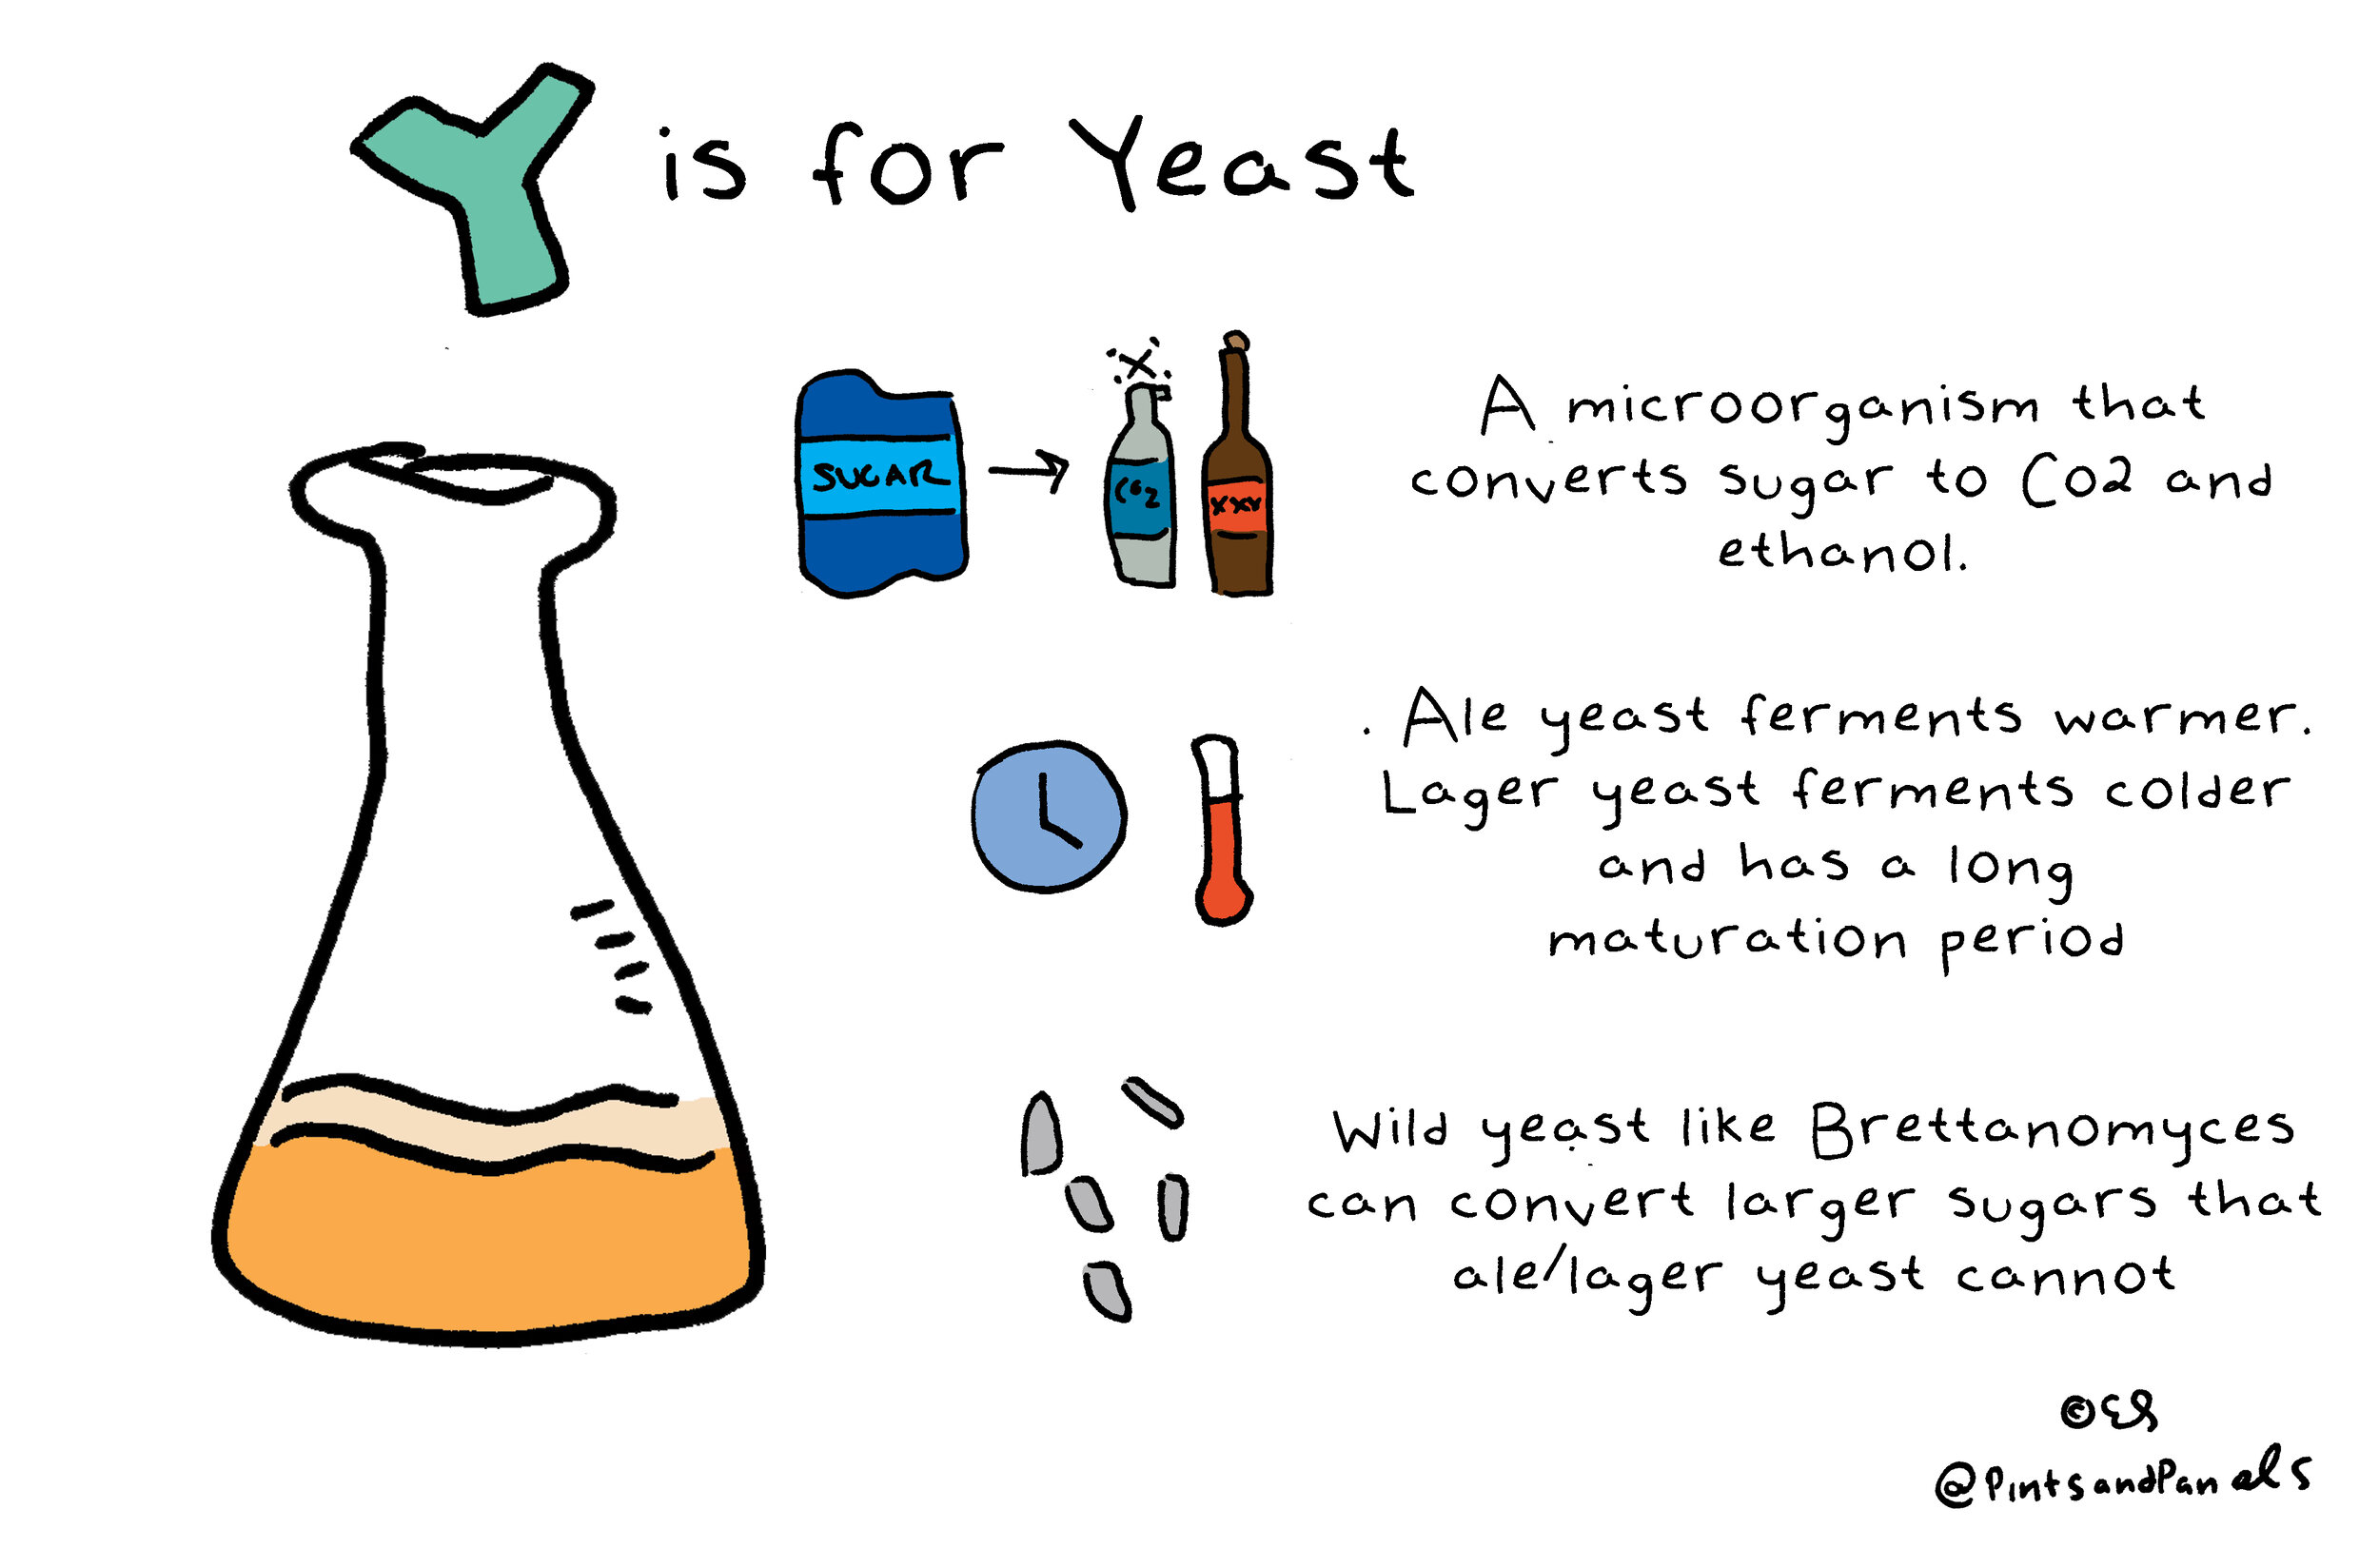 Y is for Yeast
SUGAR
CO2
XXX
A microorganism that
converts sugar to CO2 and
ethanol.
. Ale yeast ferments warmer.
Lager yeast ferments colder
and has a long
maturation period
Wild yeast like Brettanomyces
can convert larger sugars that
ale/lager yeast cannot
©ES
@PintsandPanels